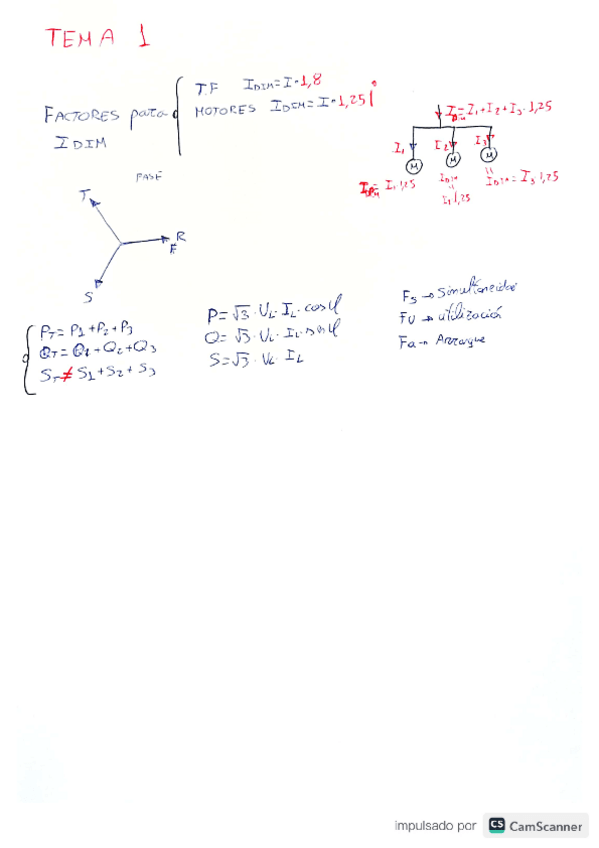 TEMA 1
FACTORES para IDIM
T.F IDIM=I·1,8
MOTORES IDIM=I·1,25
IDIM=I1+I2+I3·1,25
I1 I2 I3
M M M
IDIM=I1·1,25
IDIM = I2·1,25
IDIM = I3·1,25
FASE
T
R
S
PT = P1+P2+P3
QT = Q1+Q2+Q3
ST ≠ S1+S2+S3
P=√3·UL·IL·cosφ
Q=√3·UL·IL·senφ
S=√3·UL·IL
Fs → Simultaneidad
Fu → utilización
Fa → Arranque
impulsado por CS CamScanner